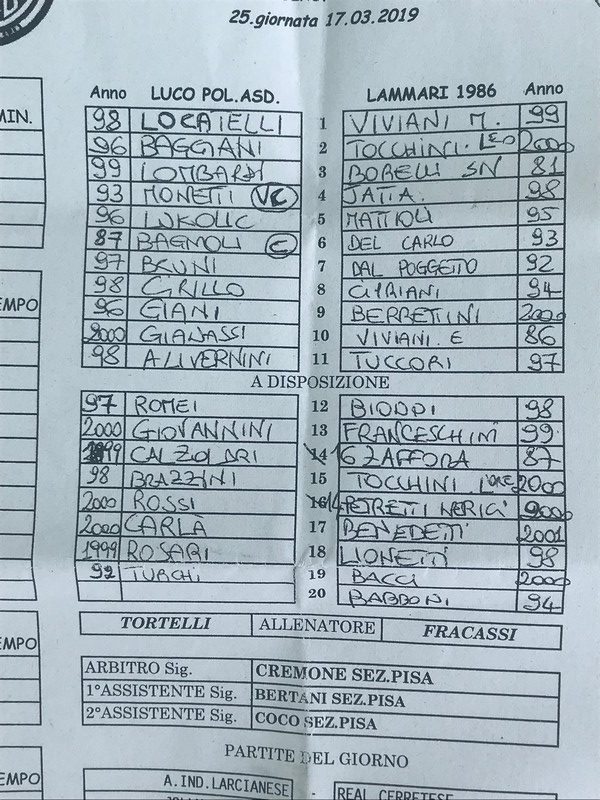 25.giornata 17.03.2019
Anno LUCO POL.ASD. LAMMARI 1986 Anno
MIN.
98 LOCATELLI 1 VIVIANI M. 99
96 BAGGIANI 2 TOCCHINI. LEO 2000
99 LOMBARDI 3 BORELLI SN 81
93 MONETTI VC 4 JATTA. 98
96 LUKOLIC 5 MATTIOLI 95
87 BAGNOLI C 6 DEL CARLO 93
97 BRUNI 7 DAL POGGETTO 92
98 GRILLO 8 CIPRIANI 94
EMPO
96 GIANI 9 BERRETTINI 2000
2000 GIANASSI 10 VIVIANI. E 86
98 ALIVERNINI 11 TUCCORI 97
A DISPOSIZIONE
97 ROMEI 12 BIODDI 98
2000 GIOVANNINI 13 FRANCESCHINI 99
1999 CALZOLARI 14 16 ZAFFORA 87
98 BRAZZINI 15 TOCCHINI 2000
2000 ROSSI 16 14 PETRETTI NERICI 2000
2000 CARLÀ 17 BENEDETTI 2001
1999 ROSARI 18 LIONETTI 98
92 TURCHI 19 BACCI 2000
20 BABBONI 94
TORTELLI ALLENATORE FRACASSI
EMPO
ARBITRO Sig. CREMONE SEZ.PISA
1°ASSISTENTE Sig. BERTANI SEZ.PISA
2°ASSISTENTE Sig. COCO SEZ.PISA
PARTITE DEL GIORNO
EMPO
A.IND.LARCIANESE - REAL CERRETESE